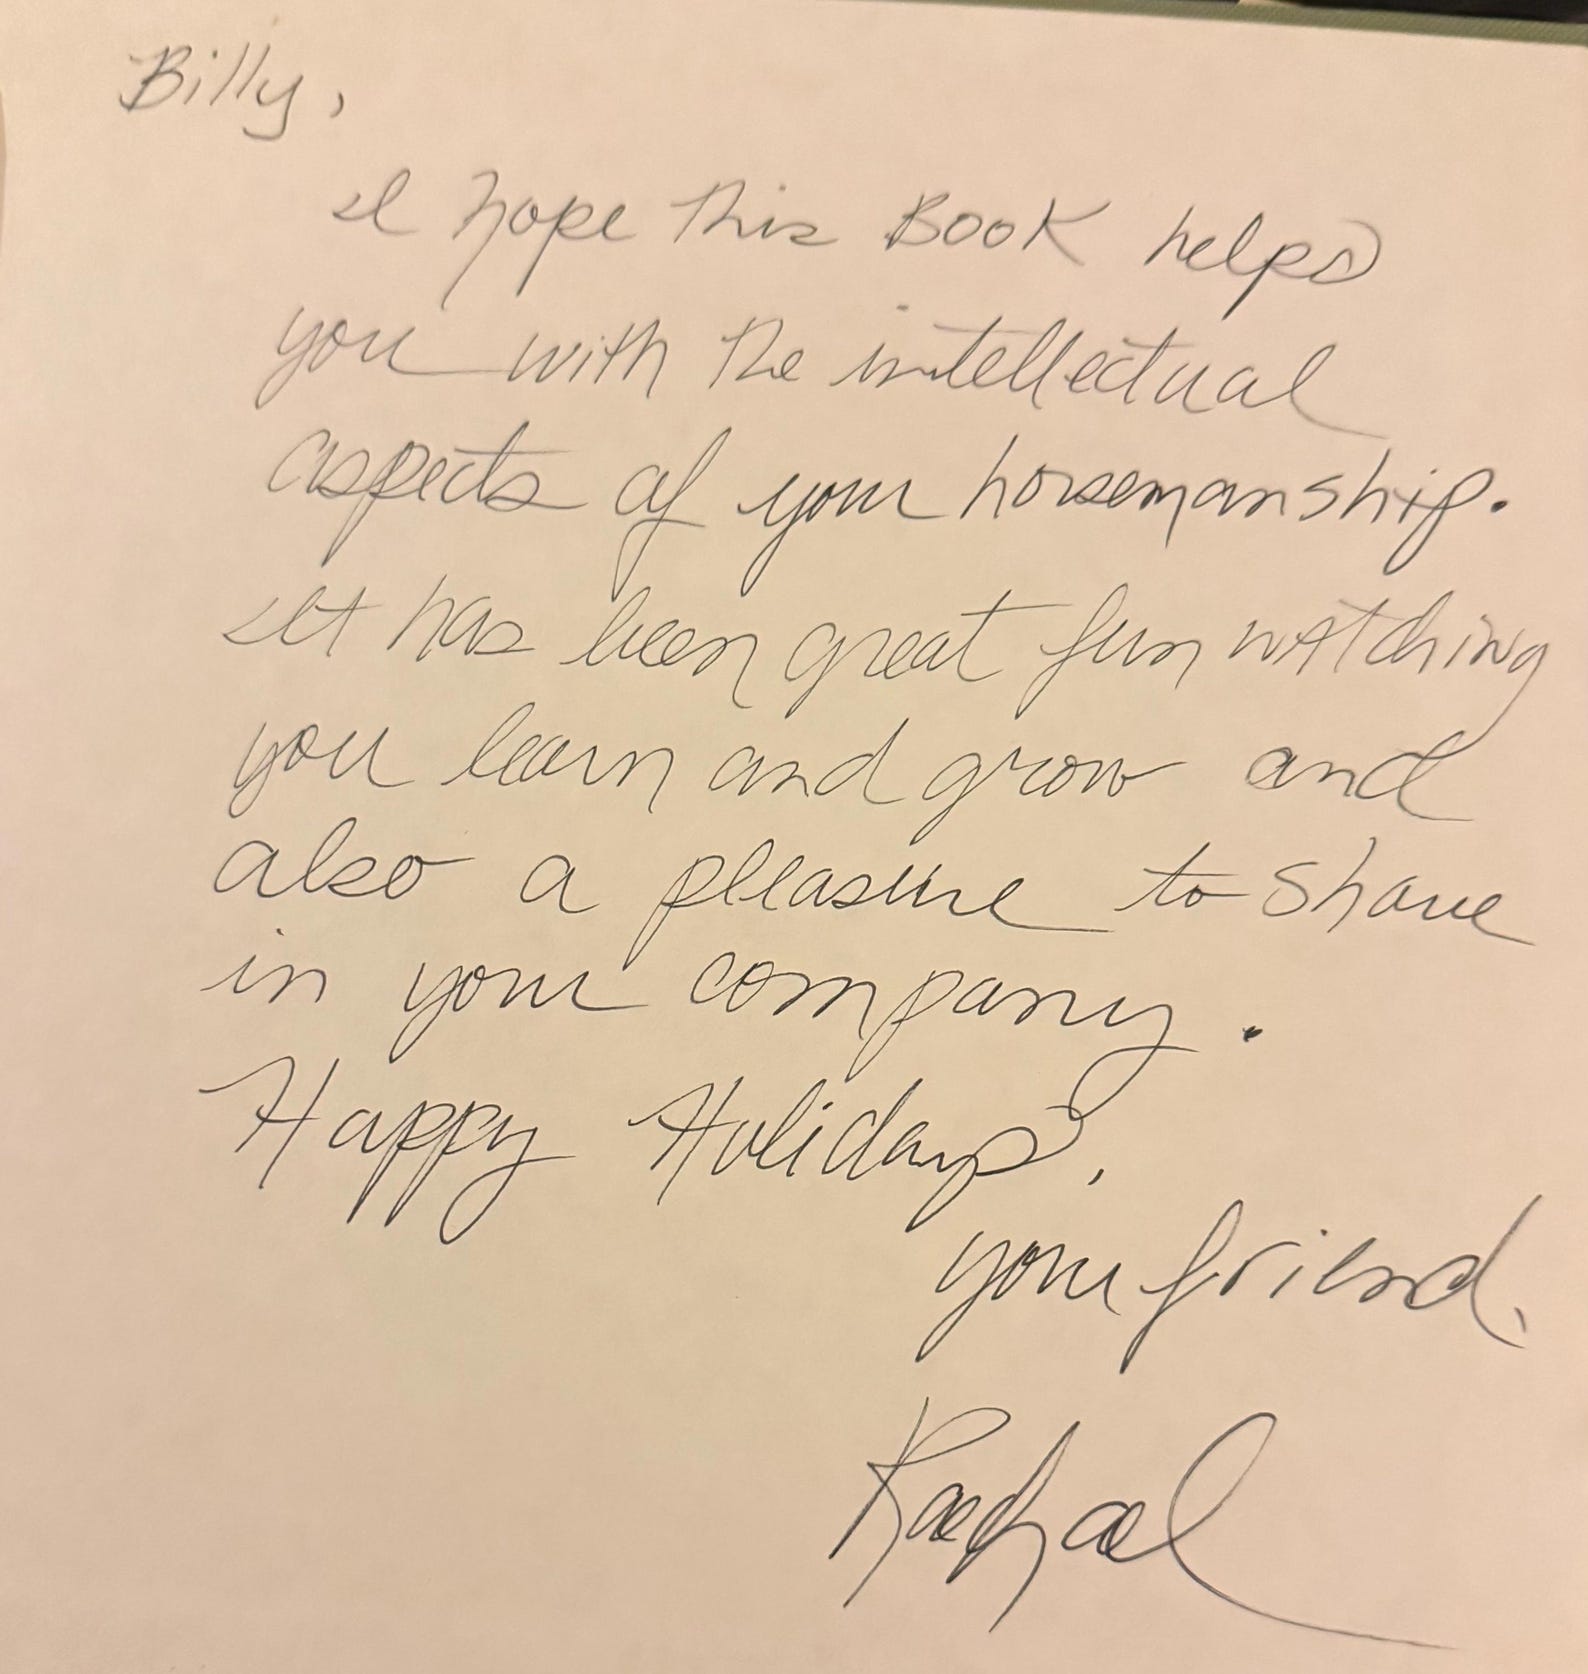 Billy,
I hope this BOOK helps
you with the intellectual
aspects of your horsemanship.
It has been great fun watching
you learn and grow and
also a pleasure to share
in your company.
Happy Holidays,
your friend,
Rachael